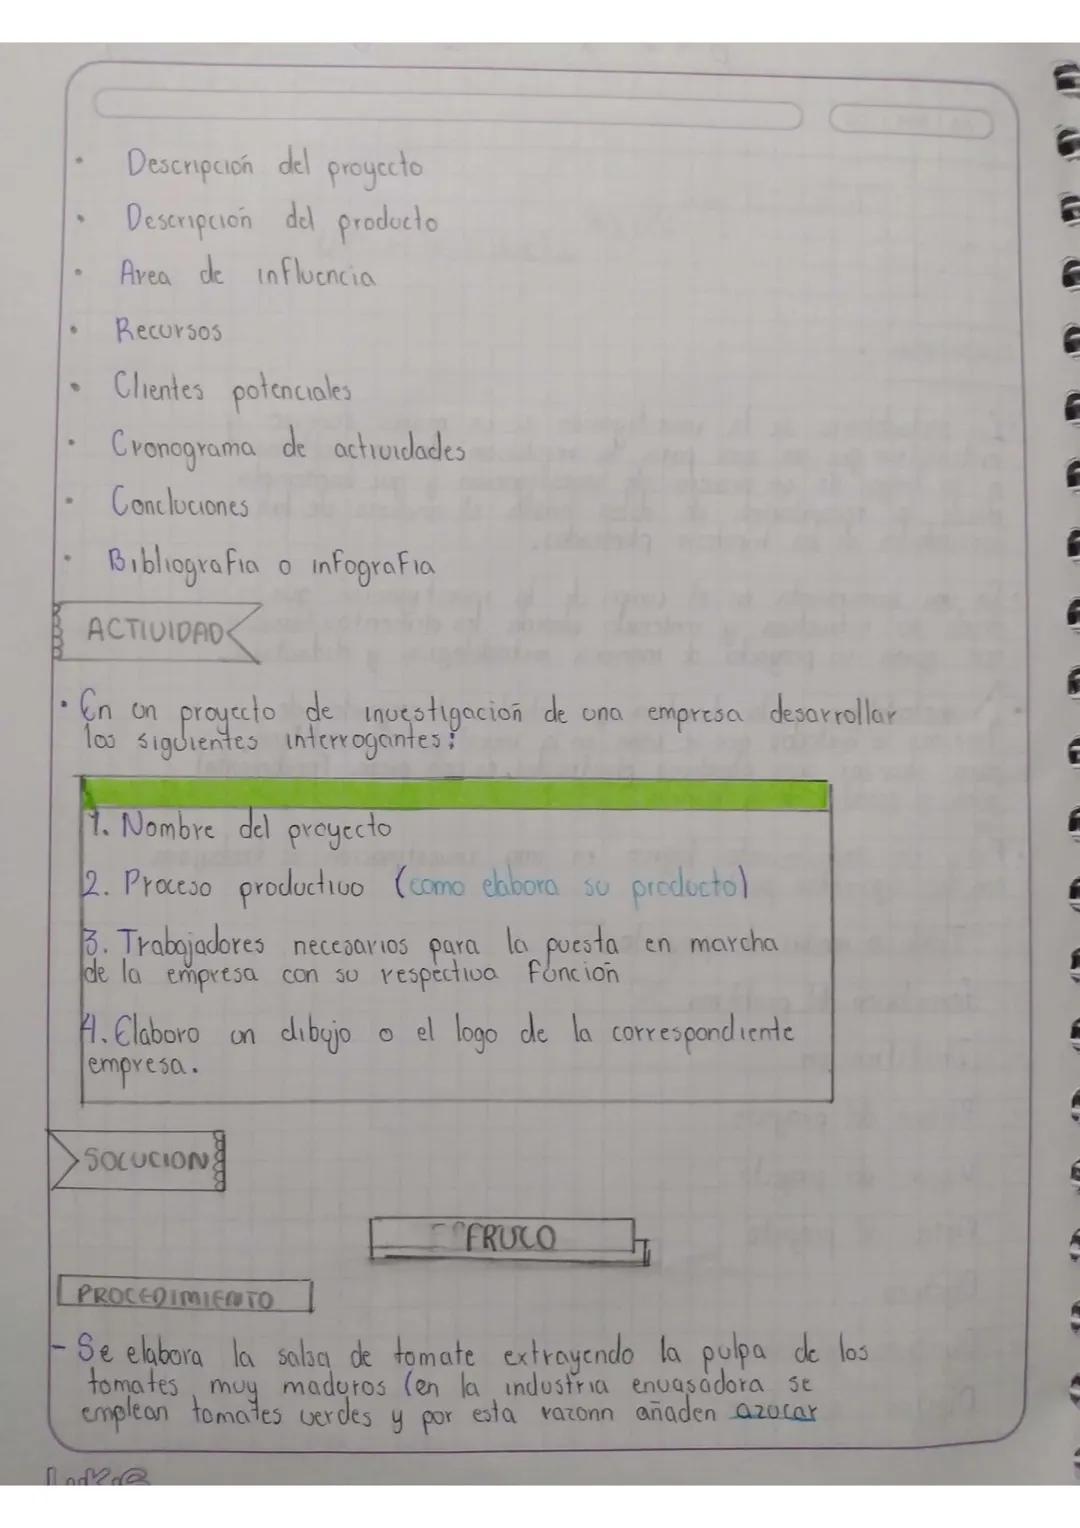 • Descripción del proyecto
• Descripción del producto
• Area de influencia
• Recursos
• Clientes potenciales
• Cronograma de actividades
• Concluciones
• Bibliografia o infografia
ACTIVIDAD
• En un proyecto de investigación de una empresa desarrollar
los siguientes interrogantes:
1. Nombre del proyecto
2. Proceso productivo (como elabora su producto)
3. Trabajadores necesarios para la puesta en marcha
de la empresa con su respectiva función
4. Elaboro un dibujo o el logo de la correspondiente
empresa.
SOLUCION
"FRUCO
PROCEDIMIENTO
- Se elabora la salsa de tomate extrayendo la pulpa de los
tomates muy maduros (en la industria envasadora se
emplean tomates verdes y por esta razonn añaden azucar